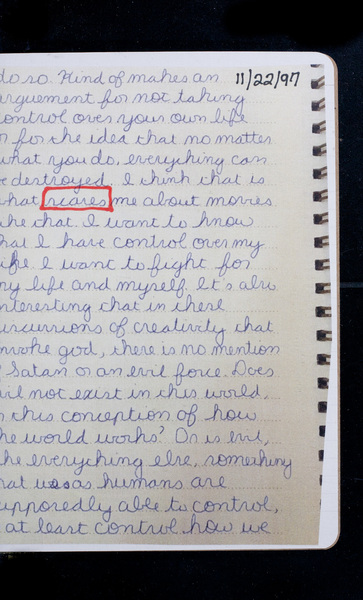 do so. Kind of makes an 11/22/97
arguement for not taking
control over your own life
r for the idea that no matter
what you do, everything can
e destroyed. I think that is
what scares me about movies
like that. I want to know
hat I have control over my
life. I want to fight for
my life and myself. It's also
nteresting that in these
xcursions of creativity that
nvoke god, there is no mention
f Satan or an evil force. Does
vil not exist in this world,
n this conception of how
he world works? Or is evil,
ike everything else, something
hat we as humans are
upposedly able to control,
at least control how we